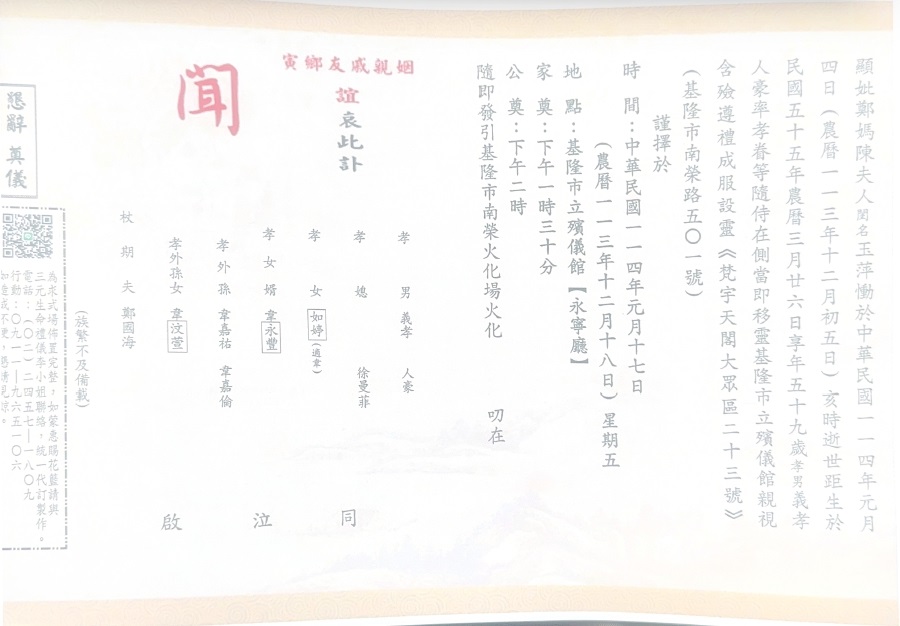 顯妣鄭媽陳夫人閨名玉萍慟於中華民國一一四年元月
四日（農曆一一三年十二月初五日）亥時逝世距生於
民國五十五年農曆三月廿六日享年五十九歲孝男義孝
人豪率孝眷等隨侍在側當即移靈基隆市立殯儀館親視
含殮遵禮成服設靈《梵宇天閣大眾區二十三號》
（基隆市南榮路五〇一號）
謹擇於
時　間：中華民國一一四年元月十七日
（農曆一一三年十二月十八日）星期五
地　點：基隆市立殯儀館【永寧廳】
家　奠：下午一時三十分
公　奠：下午二時
隨即發引基隆市南榮火化場火化　叨在
姻親戚友鄉寅
誼哀此訃
聞
孝男　義孝　人豪
孝媳　徐曼菲
孝女　如婷（適韋）
孝女婿　韋永豐
孝外孫　韋嘉祐　韋嘉倫
孝外孫女　韋汶萱
杖期夫　鄭國海
同泣啟
（族繁不及備載）
懇辭　奠儀
為求式場佈置完整，如蒙惠賜花籃請與
三元生命禮儀李小姐聯絡，統一代訂製作。
電話：（〇二）二四五七—一八〇九
行動：〇九一一—九六五一〇六
如造成不便，懇請見諒。